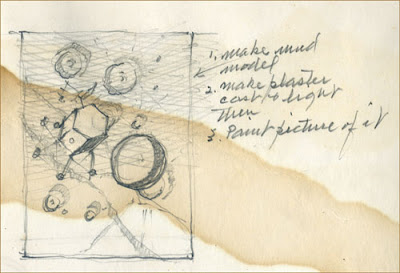 1. make mud
model
2. make plaster
cast & light
then
3. Paint picture of it